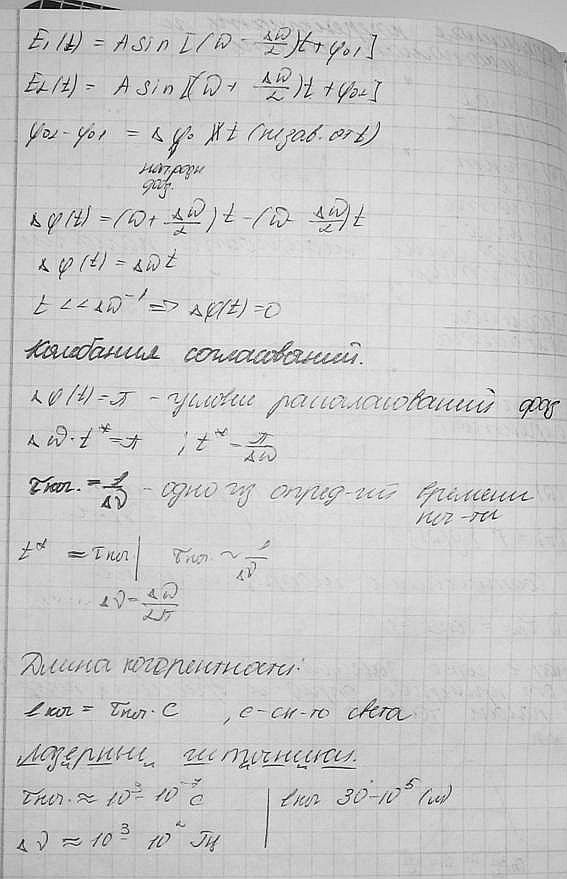 E₁(t) = A sin [(ω - Δω/2)t + φ₀₁]
E₂(t) = A sin [(ω + Δω/2)t + φ₀₂]
φ₀₂ - φ₀₁ = Δφ₀ t (незав. от t)
Δφ(t) = (ω + Δω/2)t - (ω - Δω/2)t
Δφ(t) = Δω t
t << Δω⁻¹ => Δφ(t) = 0
Колебания согласований.
Δφ(t) = π - условие рассогласований фаз
Δω · t* = π ; t* - π/Δω
τког. = 1/Δν - одно из опред-ий времени
ког-ти
t* = τког. | τког. ~ 1/Δν
Δν = Δω/2π
Длина когорентности:
lког = τког · c , c - ск-то света
Лазерный источники.
τког. ≈ 10⁻³ - 10⁻⁷ с | lког 30 - 10⁵ (м)
Δν ≈ 10³ - 10² Гц